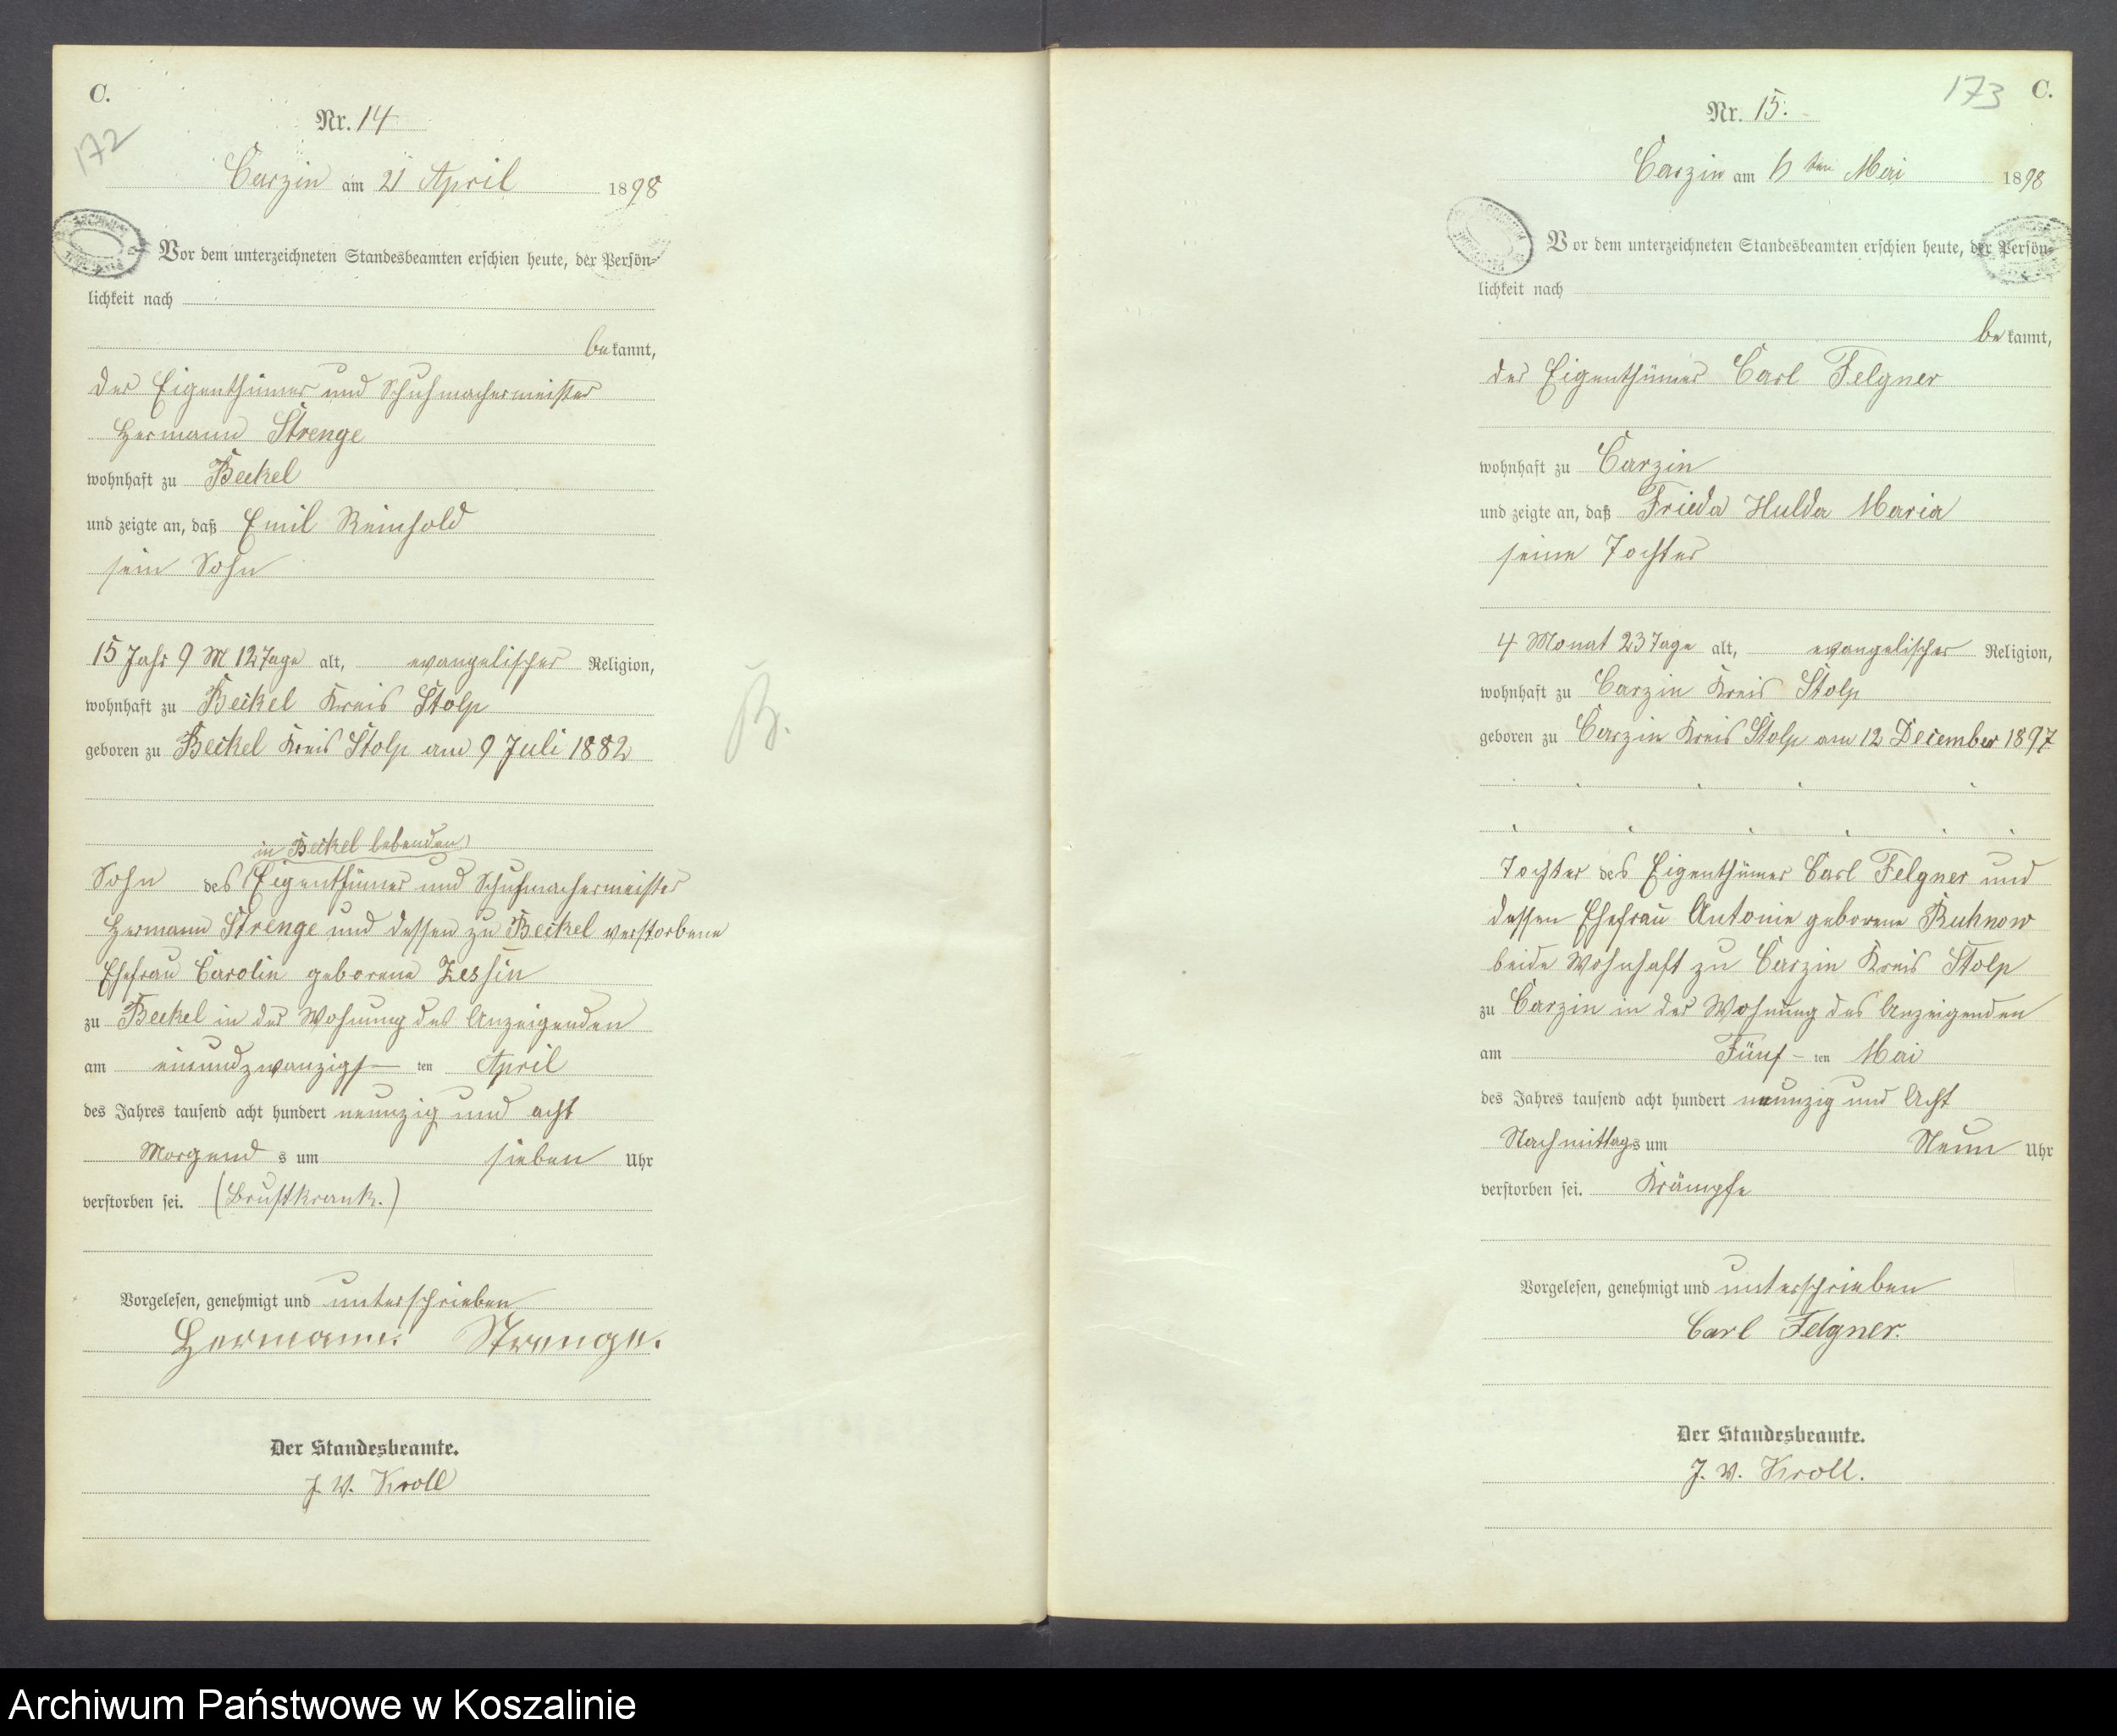 C.
172
Nr. 14
Carzin am 21 April 1898
Vor dem unterzeichneten Standesbeamten erschien heute, der Persön-
lichkeit nach
bekannt,
der Eigenthümer und Schuhmachermeister
Hermann Strenge
wohnhaft zu Beckel
und zeigte an, daß Emil Reinhold
sein Sohn
15 Jahr 9 M 12 Tage alt, evangelischer Religion,
wohnhaft zu Beckel Kreis Stolp
geboren zu Beckel Kreis Stolp am 9 Juli 1882
in Beckel lebenden
Sohn des Eigenthümer und Schuhmachermeister
Hermann Strenge und dessen zu Beckel verstorbene
Ehefrau Carolin geborene Zessin
zu Beckel in der Wohnung des Anzeigenden
am einundzwanzigs- ten April
des Jahres tausend acht hundert neunzig und acht
Morgends um sieben Uhr
verstorben sei. (Brustkrank.)
Vorgelesen, genehmigt und unterschrieben
Hermann. Strenge.
Der Standesbeamte.
J. W. Kroll
B.
173
C.
Nr. 15.
Carzin am 6 ten Mai 1898
Vor dem unterzeichneten Standesbeamten erschien heute, der Persön-
lichkeit nach
bekannt,
der Eigenthümer Carl Felgner
wohnhaft zu Carzin
und zeigte an, daß Frieda Hulda Maria
seine Tochter
4 Monat 23 Tage alt, evangelischer Religion,
wohnhaft zu Carzin Kreis Stolp
geboren zu Carzin Kreis Stolp am 12 December 1897
Tochter des Eigenthümer Carl Felgner und
dessen Ehefrau Antonie geborene Ruhnow
beide Wohnhaft zu Carzin Kreis Stolp
zu Carzin in der Wohnung des Anzeigenden
am Fünf- ten Mai
des Jahres tausend acht hundert neunzig und Acht
Nachmittags um Neun Uhr
verstorben sei. Krämpfe
Vorgelesen, genehmigt und unterschrieben
Carl Felgner.
Der Standesbeamte.
J. W. Kroll.
Archiwum Państwowe w Koszalinie